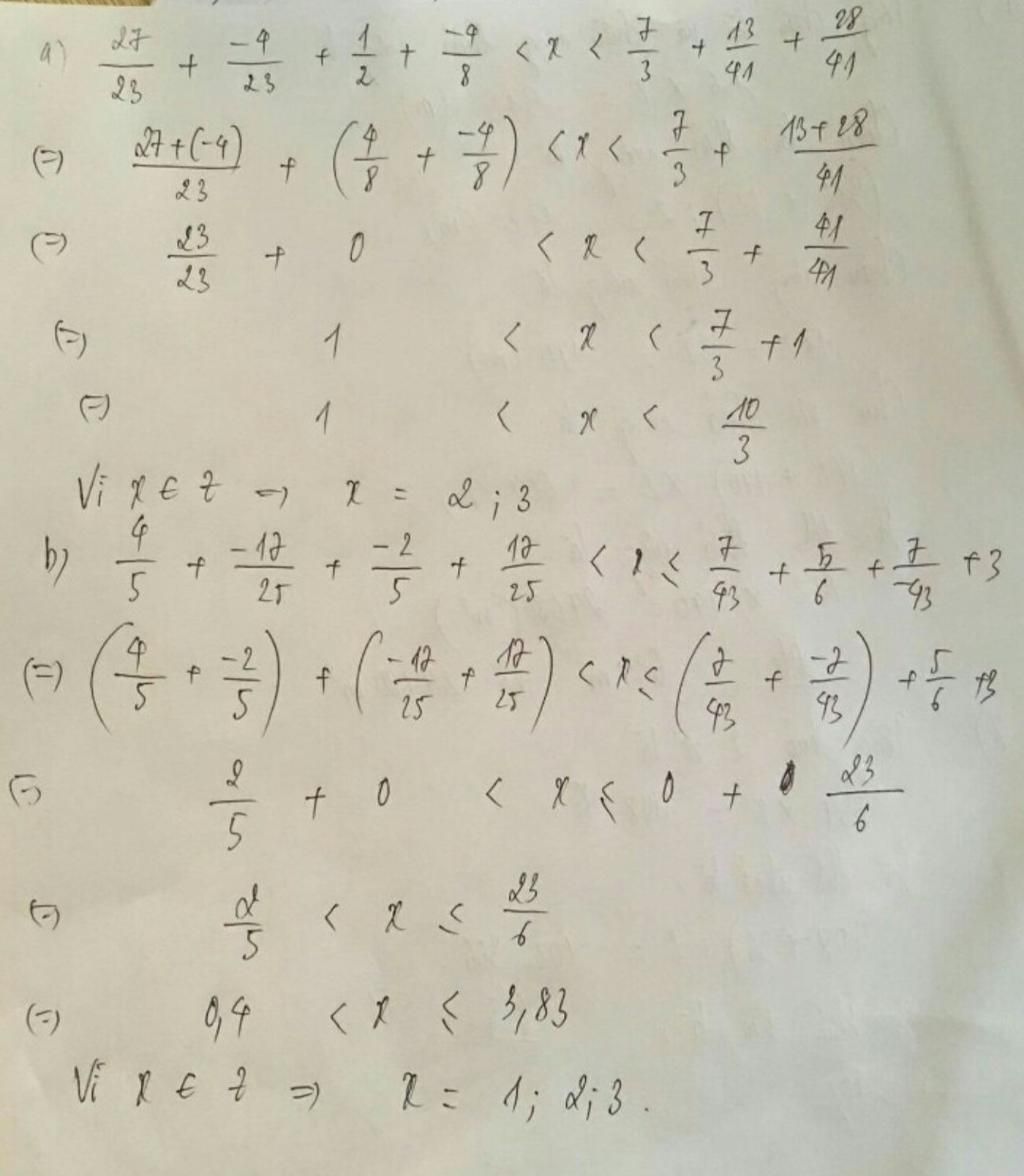 a) 27/23 + -4/23 + 1/2 + -4/8 < x < 7/3 + 13/41 + 28/41
(=) 27+(-4)/23 + (4/8 + -4/8) < x < 7/3 + 13+28/41
(=) 23/23 + 0 < x < 7/3 + 41/41
(=) 1 < x < 7/3 + 1
(=) 1 < x < 10/3
Vì x ∈ Z => x = 2 ; 3
b) 4/5 + -17/25 + -2/5 + 17/25 < x ≤ 7/43 + 5/6 + 7/-43 + 3
(=) (4/5 + -2/5) + (-17/25 + 17/25) < x ≤ (7/43 + -7/43) + 5/6 + 3
(=) 2/5 + 0 < x ≤ 0 + 23/6
(=) 2/5 < x ≤ 23/6
(=) 0,4 < x ≤ 3,83
Vì x ∈ Z => x = 1; 2; 3.